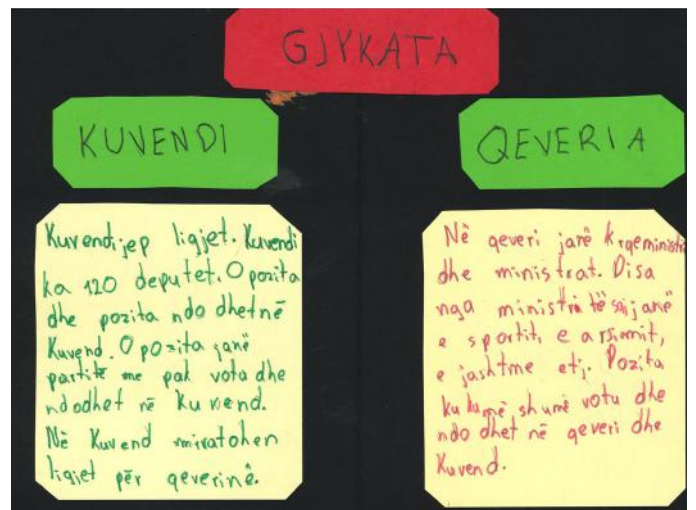 GJYKATA
KUVENDI
Kuvendi jep ligjet. Kuvendi
ka 120 deputet. Opozita
dhe pozita ndodhet në
Kuvend. Opozita janë
partitë me pak vota dhe
ndodhet në Kuvend.
Në Kuvend miratohen
ligjet për qeverinë.
QEVERIA
Në qeveri janë
dhe ministrat. Disa
nga ministri të janë
e sportit, e arsimit,
e jashtme etj. Pozita
shumë votu dhe
ndodhet në qeveri dhe
Kuvend.